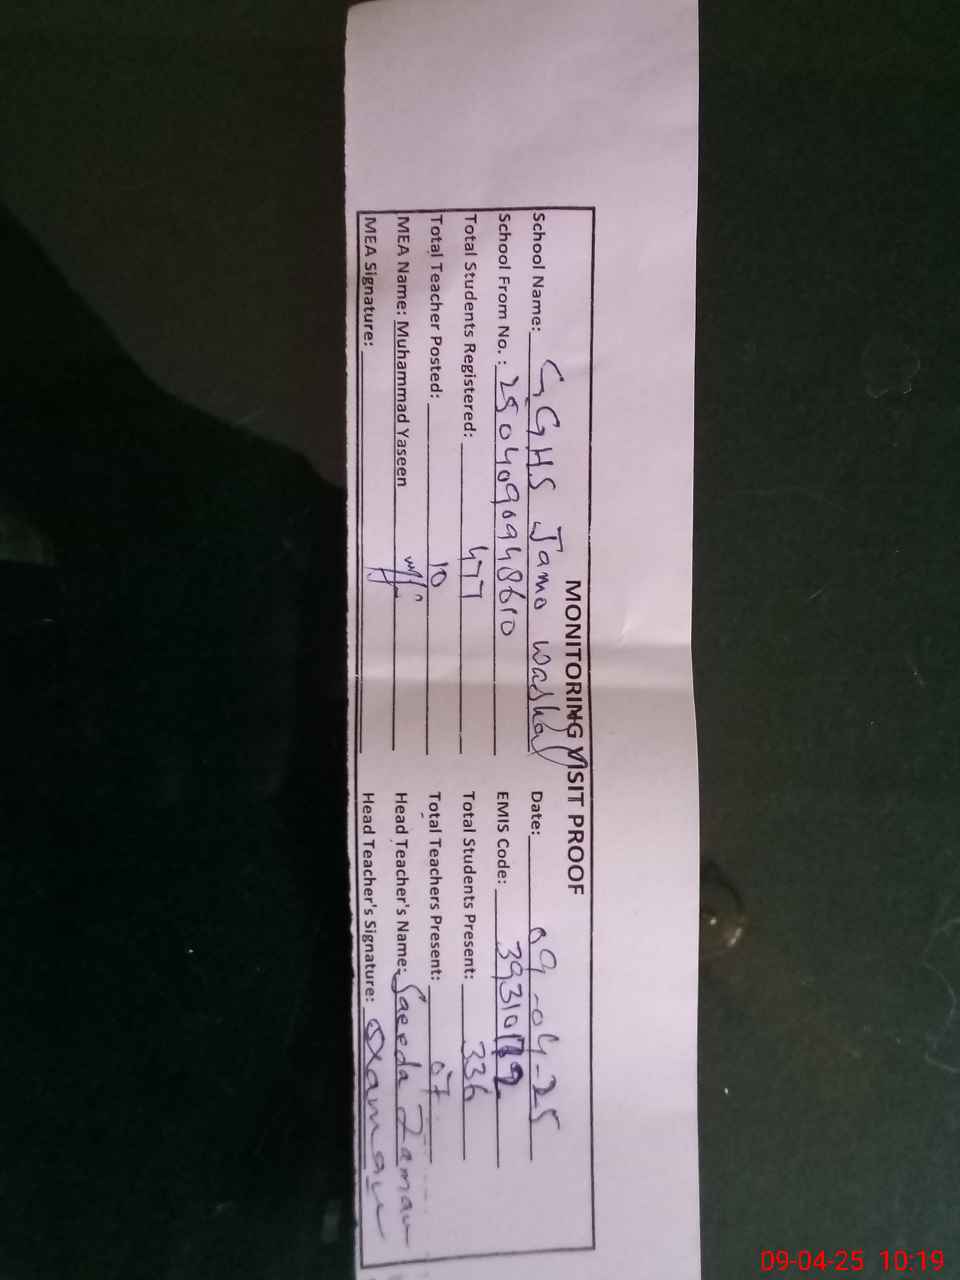 MONITORING VISIT PROOF
School Name: G.GHS Jamo Date: 09-04-25
School From No.: 2504090948610 EMIS Code:
Total Students Registered: 477 Total Students Present: 336
Total Teacher Posted: 10 Total Teachers Present: 07
MEA Name: Muhammad Yaseen Head Teacher's Name: Saeeda Zaman
MEA Signature: Head Teacher's Signature:
09-04-25 10:19